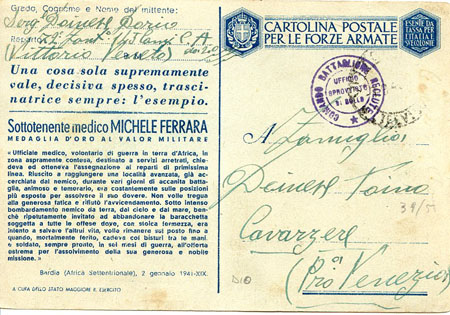 Grado, Cognome e Nome del mittente:
Serg Dainese Dario
Reparto
(Vittorio Veneto)
Una cosa sola supremamente
vale, decisiva spesso, trasci-
natrice sempre: l'esempio.
Sottotenente medico MICHELE FERRARA
MEDAGLIA D'ORO AL VALOR MILITARE
«Ufficiale medico, volontario di guerra in terra d'Africa, in
zona aspramente contesa, destinato a servizi arretrati, chie-
deva ed otteneva l'assegnazione al reparti di primissima
linea. Riuscito a raggiungere una località avanzata, già ac-
cerchiata dal nemico, durante vari giorni di accanita batta-
glia, animoso e temerario, era costantemente sulle posizioni
più esposte per assolvere il suo dovere. Non volle tregua
alla generosa fatica e rifiutò l'avvicendamento. Sotto intenso
bombardamento nemico da terra, dal cielo e dal mare, ben-
chè ripetutamente invitato ad abbandonare la baracchetta
soggetta a tutte le offese doye, con stoica fermezza, era
intento a salvare l'altrui vita, volle rimanere sul posto fino a
quando, mortalmente ferito, cadeva coi bisturi tra le mani.
« soldato, sempre pronto, in sei mesi di guerra, all'offerta
estrema per l'assolvimento della sua generosa e nobile
missione. »
Bardia (Africa Settentrionale), 2 gennaio 1941-XIX.
A CURA DELLO STATO MAGGIORE R. ESERCITO
CARTOLINA POSTALE
PER LE FORZE ARMATE
ESENTE DA
TASSA PER
L'ITALIA E
SUE COLONIE
COMANDO BATTAGLIONE RECLUTE
UFFICIO
SPROVVISTO
DI BOLLO
A Famiglia
Dainese
Cavarzere
(Pro. Venezia)